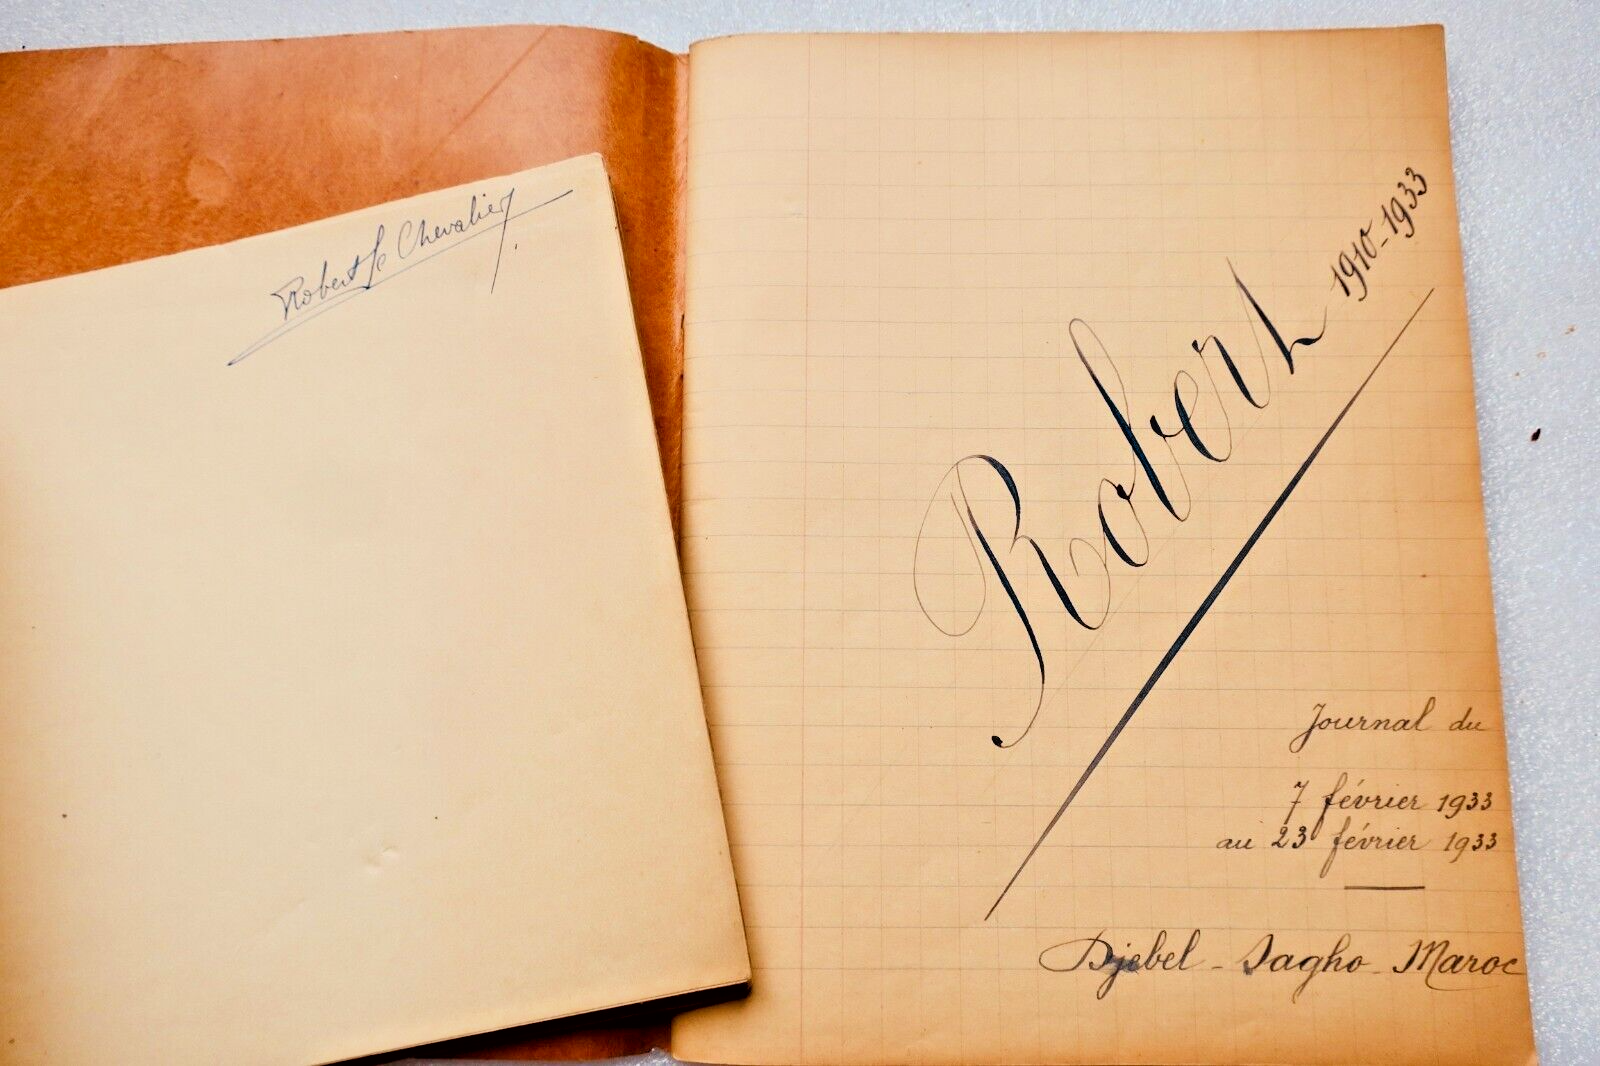 Robert Le Chevalier
Robert 1910-1933
Journal du
7 février 1933
au 23 février 1933
Djebel - Sagho - Maroc